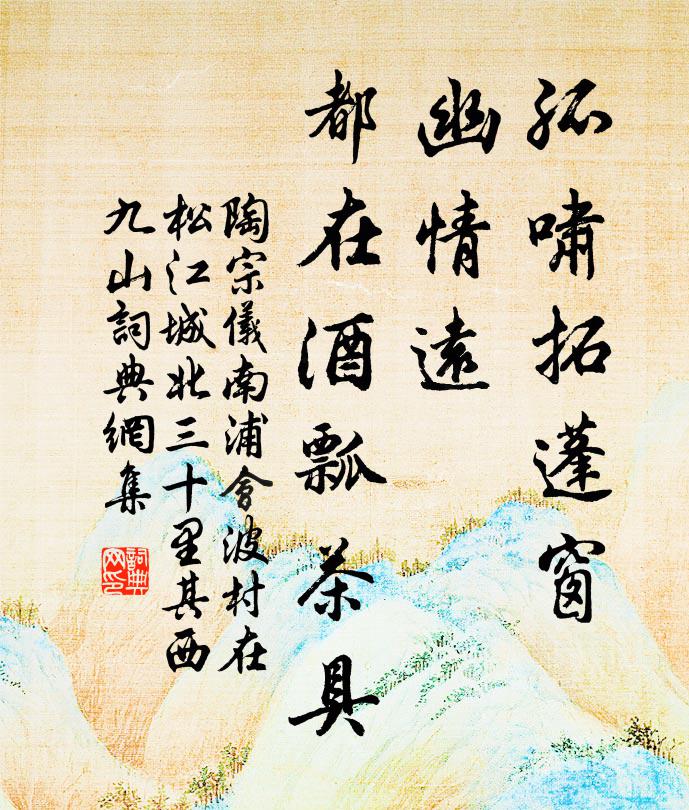 孤嘯拓蓬窗
幽情遠
都在酒瓢茶具
陶宗儀南浦會波村在
松江城北三十里其西
九山詞典網集
詞典
网印